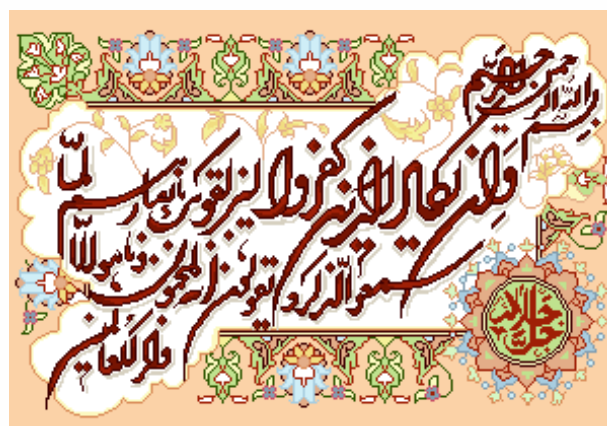 بسم الله الرحمن الرحیم
وان یکاد الذین کفروا لیزلقونک بابصارهم لما
سمعوا الذکر و یقولون انه لمجنون و ما هو الا
ذکر للعالمین
جل جلاله